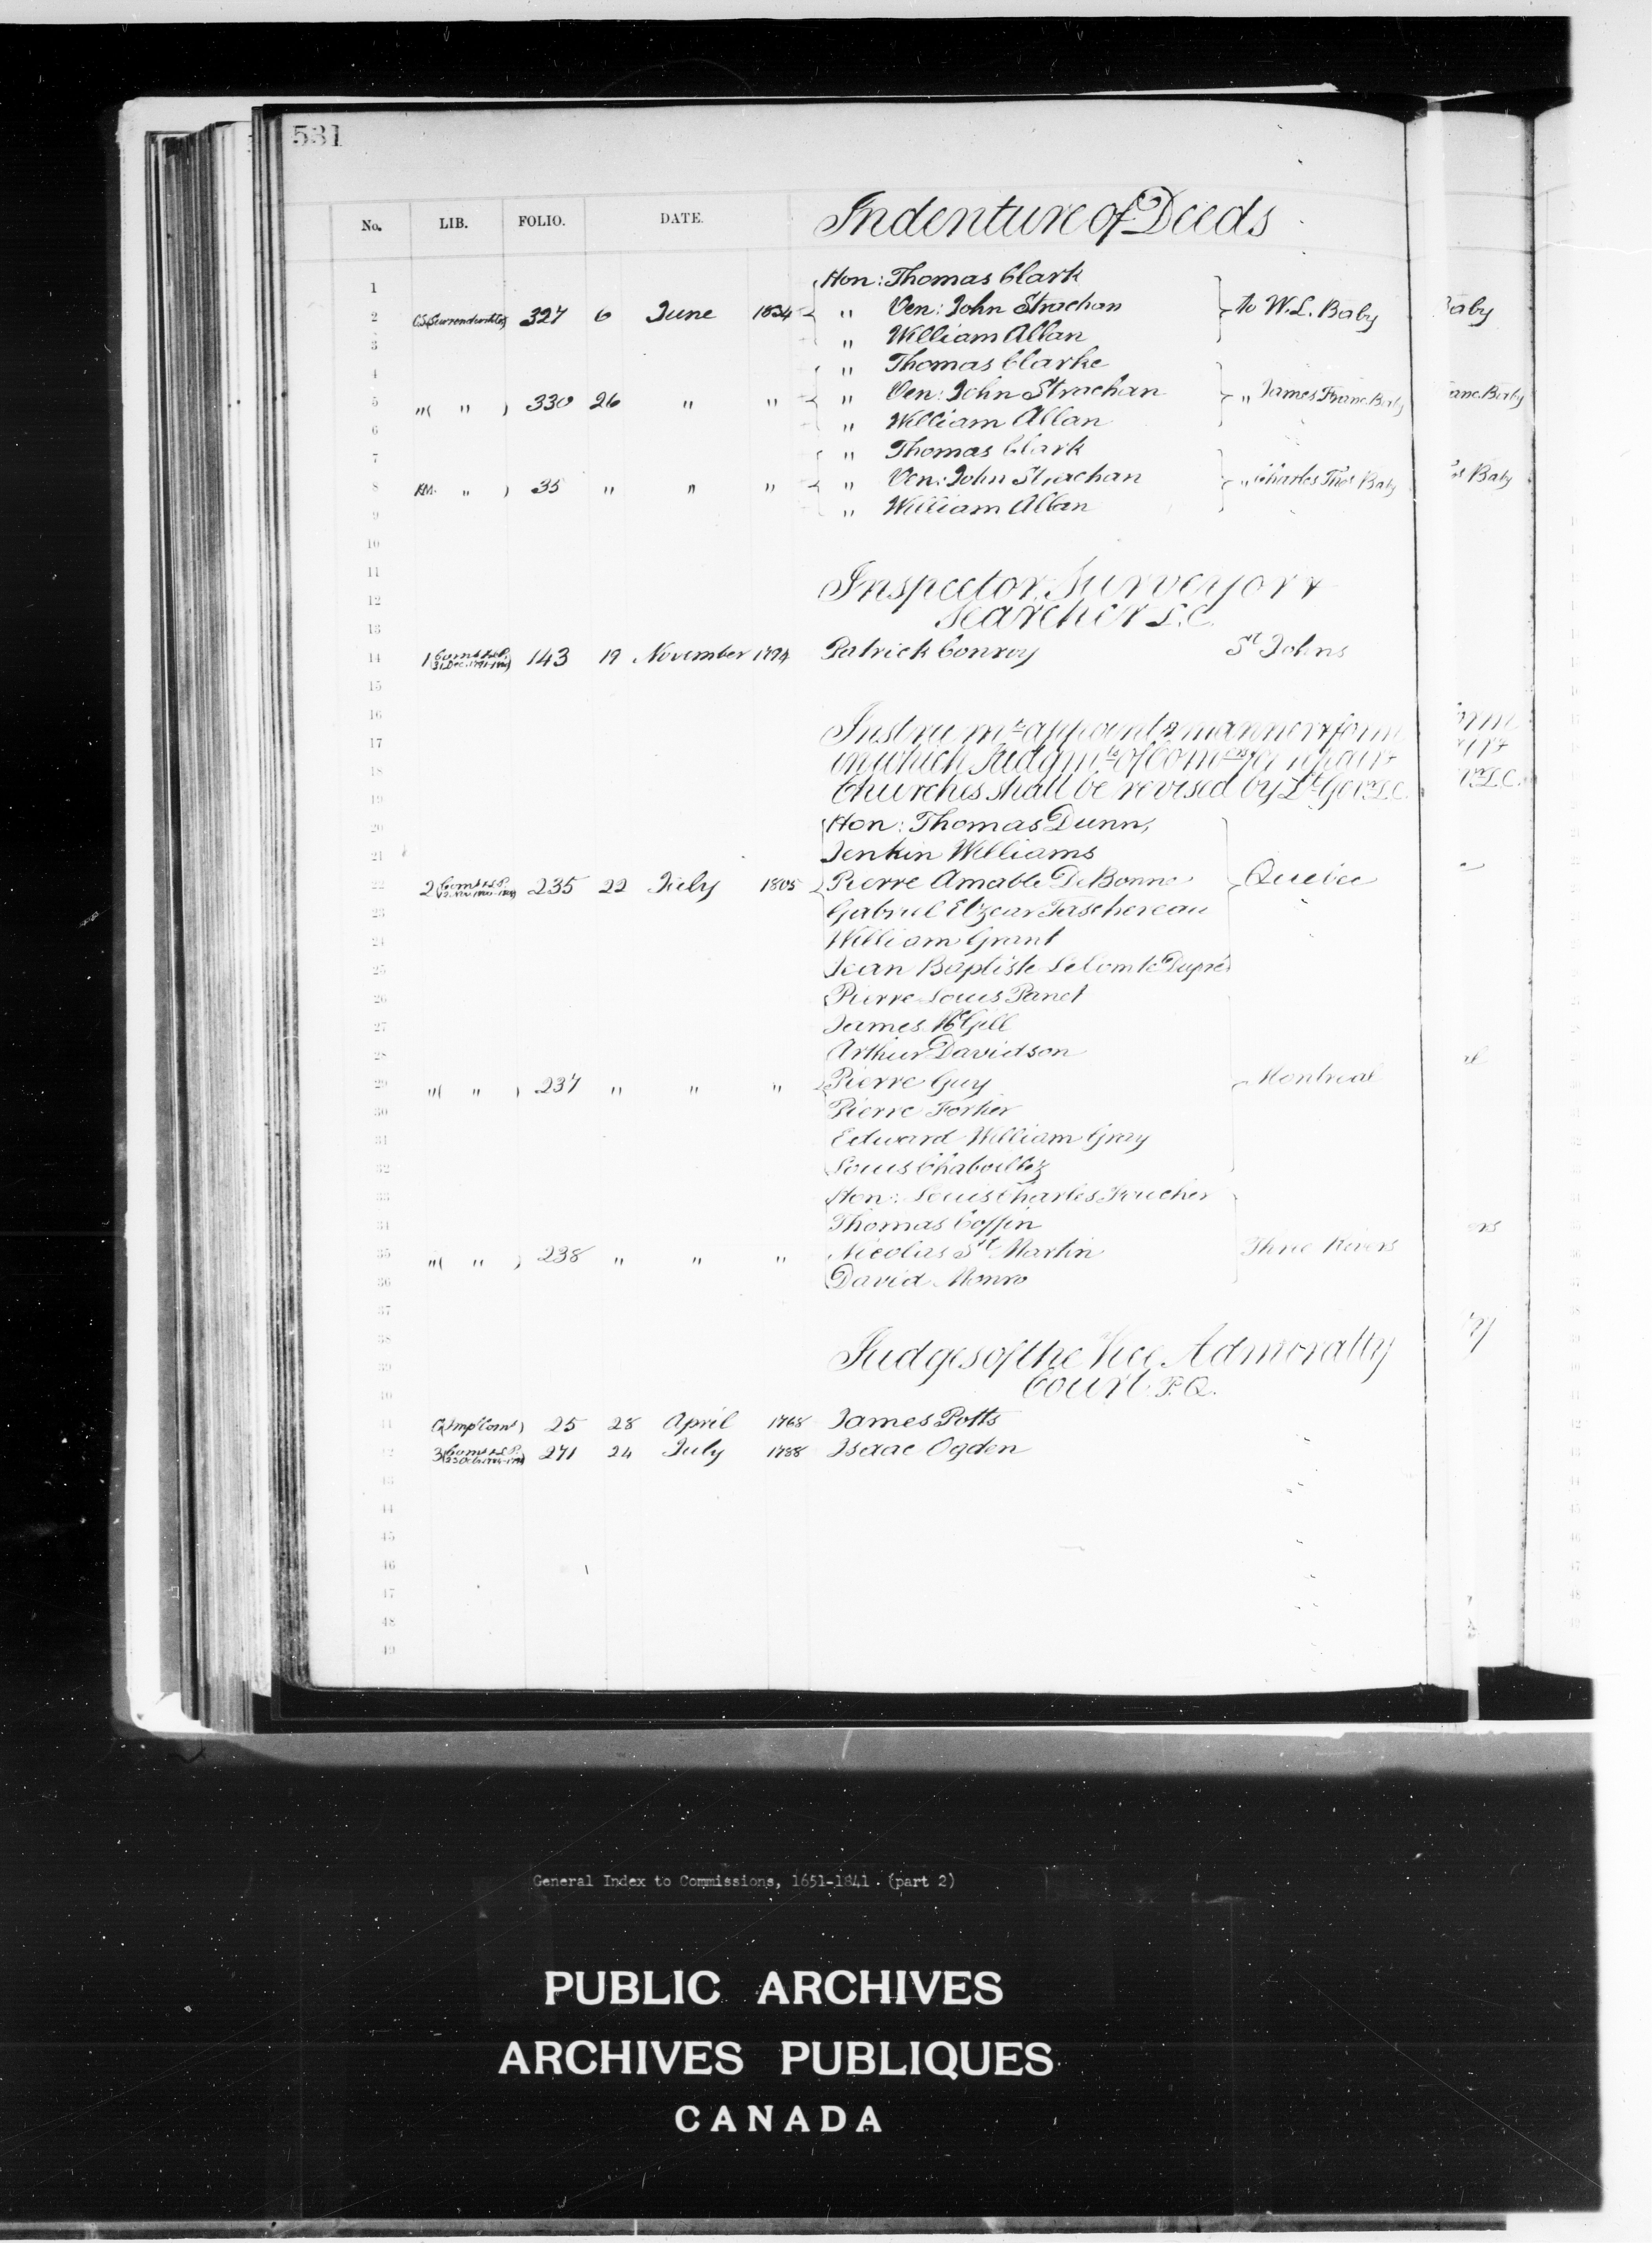 531
No. LIB. FOLIO. DATE. Indenture of Deeds
1 Hon: Thomas Clark
2 327 6 June 1834 " Ven: John Strachan to W. L. Baby
3 " William Allan
4 " Thomas Clarke
5 "( " ) 330 26 " " " Ven: John Strachan " James Franc. Baby
6 " William Allan
7 " Thomas Clark
8 " ) 35 " " " " Ven: John Strachan " Charles Thos Baby
9 " William Allan
10
11 Inspector, Surveyor &
12 Searcher L.C.
13
14 1 143 19 November 1794 Patrick Conroy St Johns
15
16 Instrumt appointg manner & form
17 in which Judgmts of Comrs for repair &
18 Churches shall be revised by Lt Govr L.C.
19
20 Hon: Thomas Dunn,
21 Jenkin Williams
22 2 235 22 July 1805 Pierre Amable De Bonne Quebec
23 Gabriel Elzear Taschereau
24 William Grant
25 Jean Baptiste Lecomte Dupré
26 Pierre Louis Panet
27 James McGill
28 Arthur Davidson
29 "( " ) 237 " " " Pierre Guy Montreal
30 Pierre Fortier
31 Edward William Gray
32 Louis Chaboillez
33 Hon: Louis Charles Foucher
34 Thomas Coffin
35 "( " ) 238 " " " Nicolas St Martin Three Rivers
36 David Monro
37
38 Judges of the Vice Admoralty
39 Court P.Q.
40
41 25 28 April 1768 James Potts
42 3 271 24 July 1788 Isaac Ogden
43
44
45
46
47
48
49
General Index to Commissions, 1651-1841 (part 2)
PUBLIC ARCHIVES
ARCHIVES PUBLIQUES
CANADA